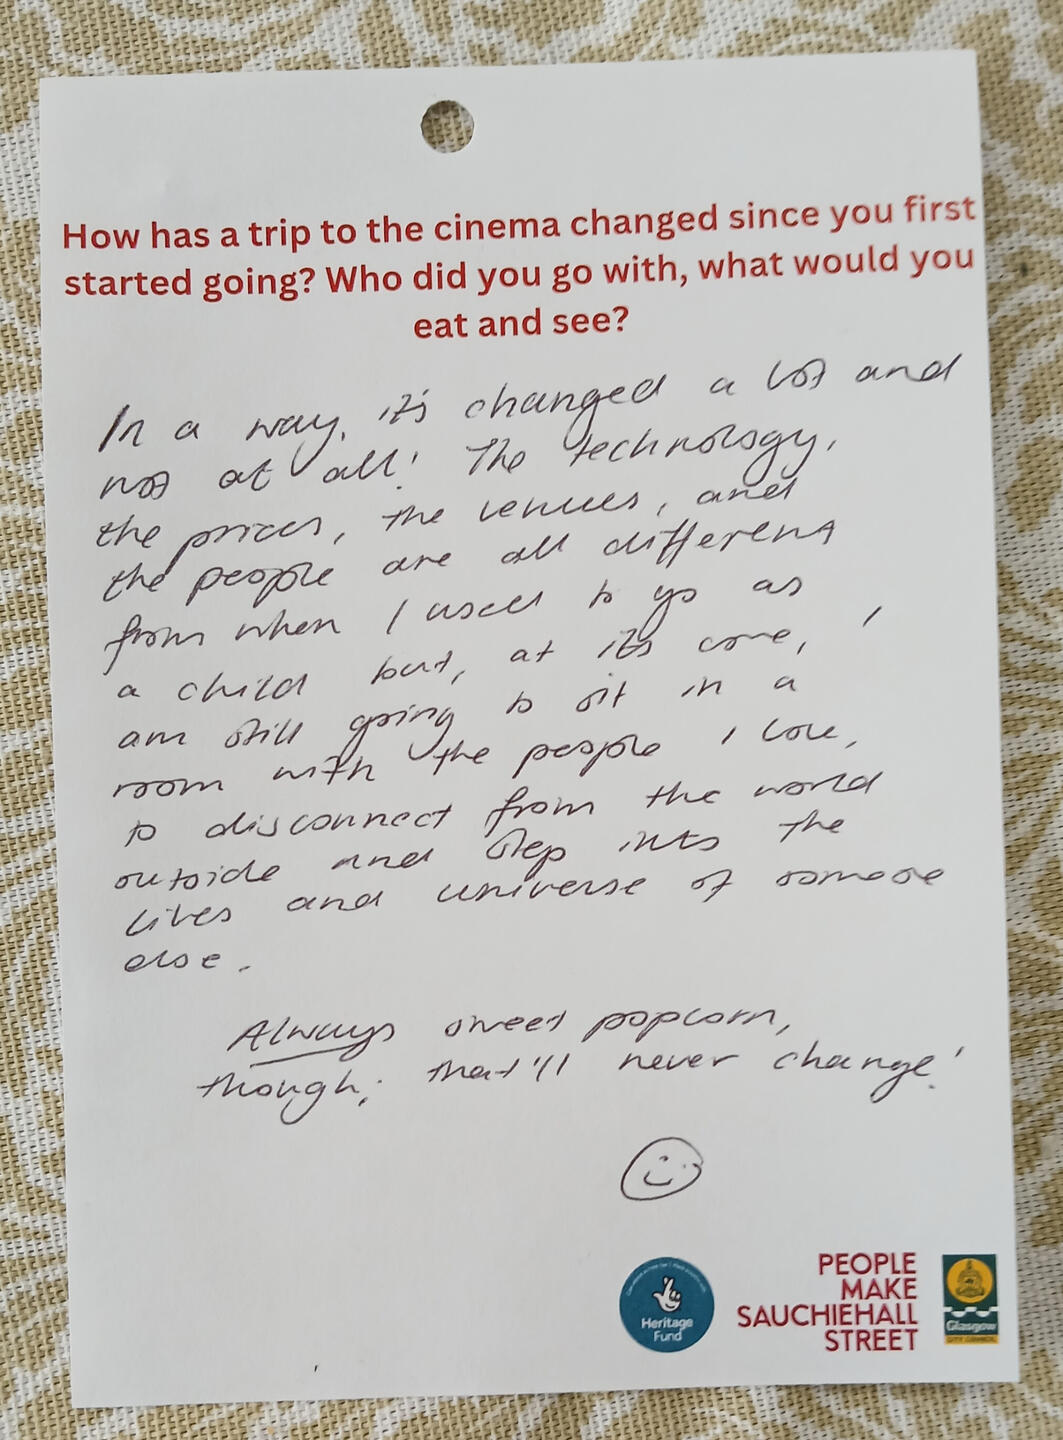 How has a trip to the cinema changed since you first
started going? Who did you go with, what would you
eat and see?
In a way, it's changed a lot and
not at all! The technology,
the prices, the venues, and
the people are all different
from when I used to go as
a child but, at its core, I
am still going to sit in a
room with the people I love,
to disconnect from the world
outside and step into the
lives and universe of someoe
else.
Always sweet popcorn,
though; that'll never change!
Heritage
Fund
PEOPLE
MAKE
SAUCHIEHALL
STREET
Glasgow
CITY COUNCIL